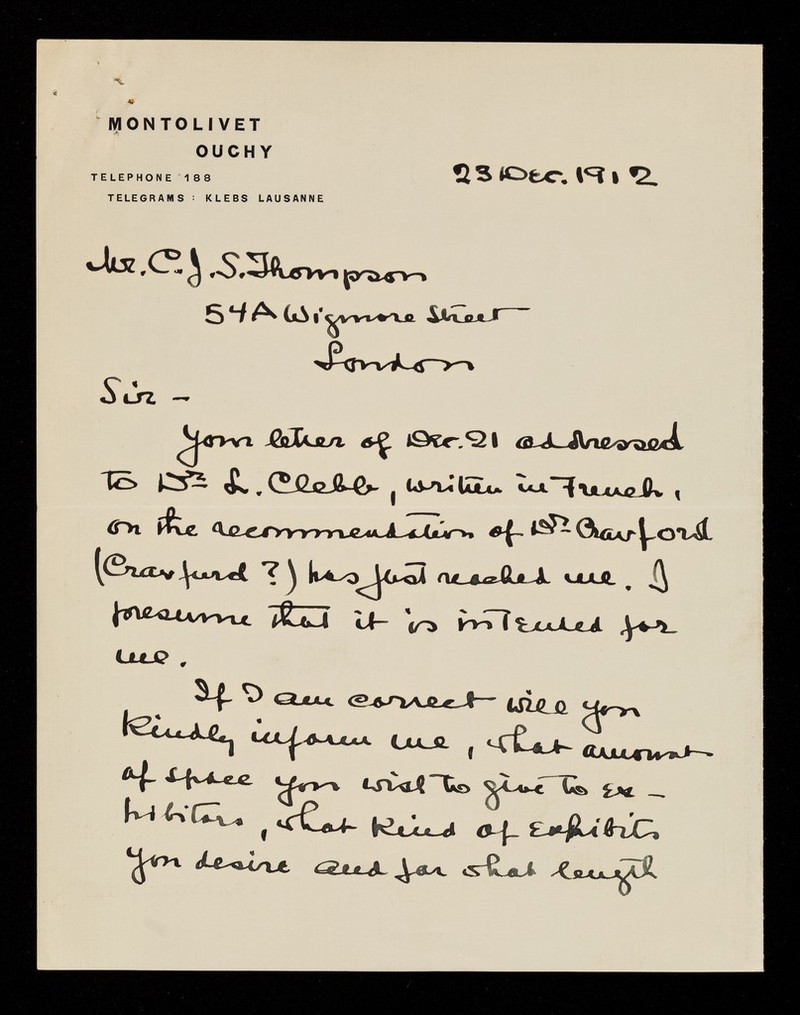 MONTOLIVET
OUCHY
TELEPHONE 188
TELEGRAMS : KLEBS LAUSANNE
23 Dec. 1912
Mr. C. J. S. Thompson
54A Wigmore Street
London
Sir -
Your letter of Dec. 21 addressed
to Dr L. Clebb, written in French,
on the recommendation of Dr Cravford
(Cravfurd ?) has just reached me. I
presume that it is intended for
me.
If I am correct will you
kindly inform me, what amount
of space you wish to give to ex-
hibitors, what kind of exhibits
you desire and for what length